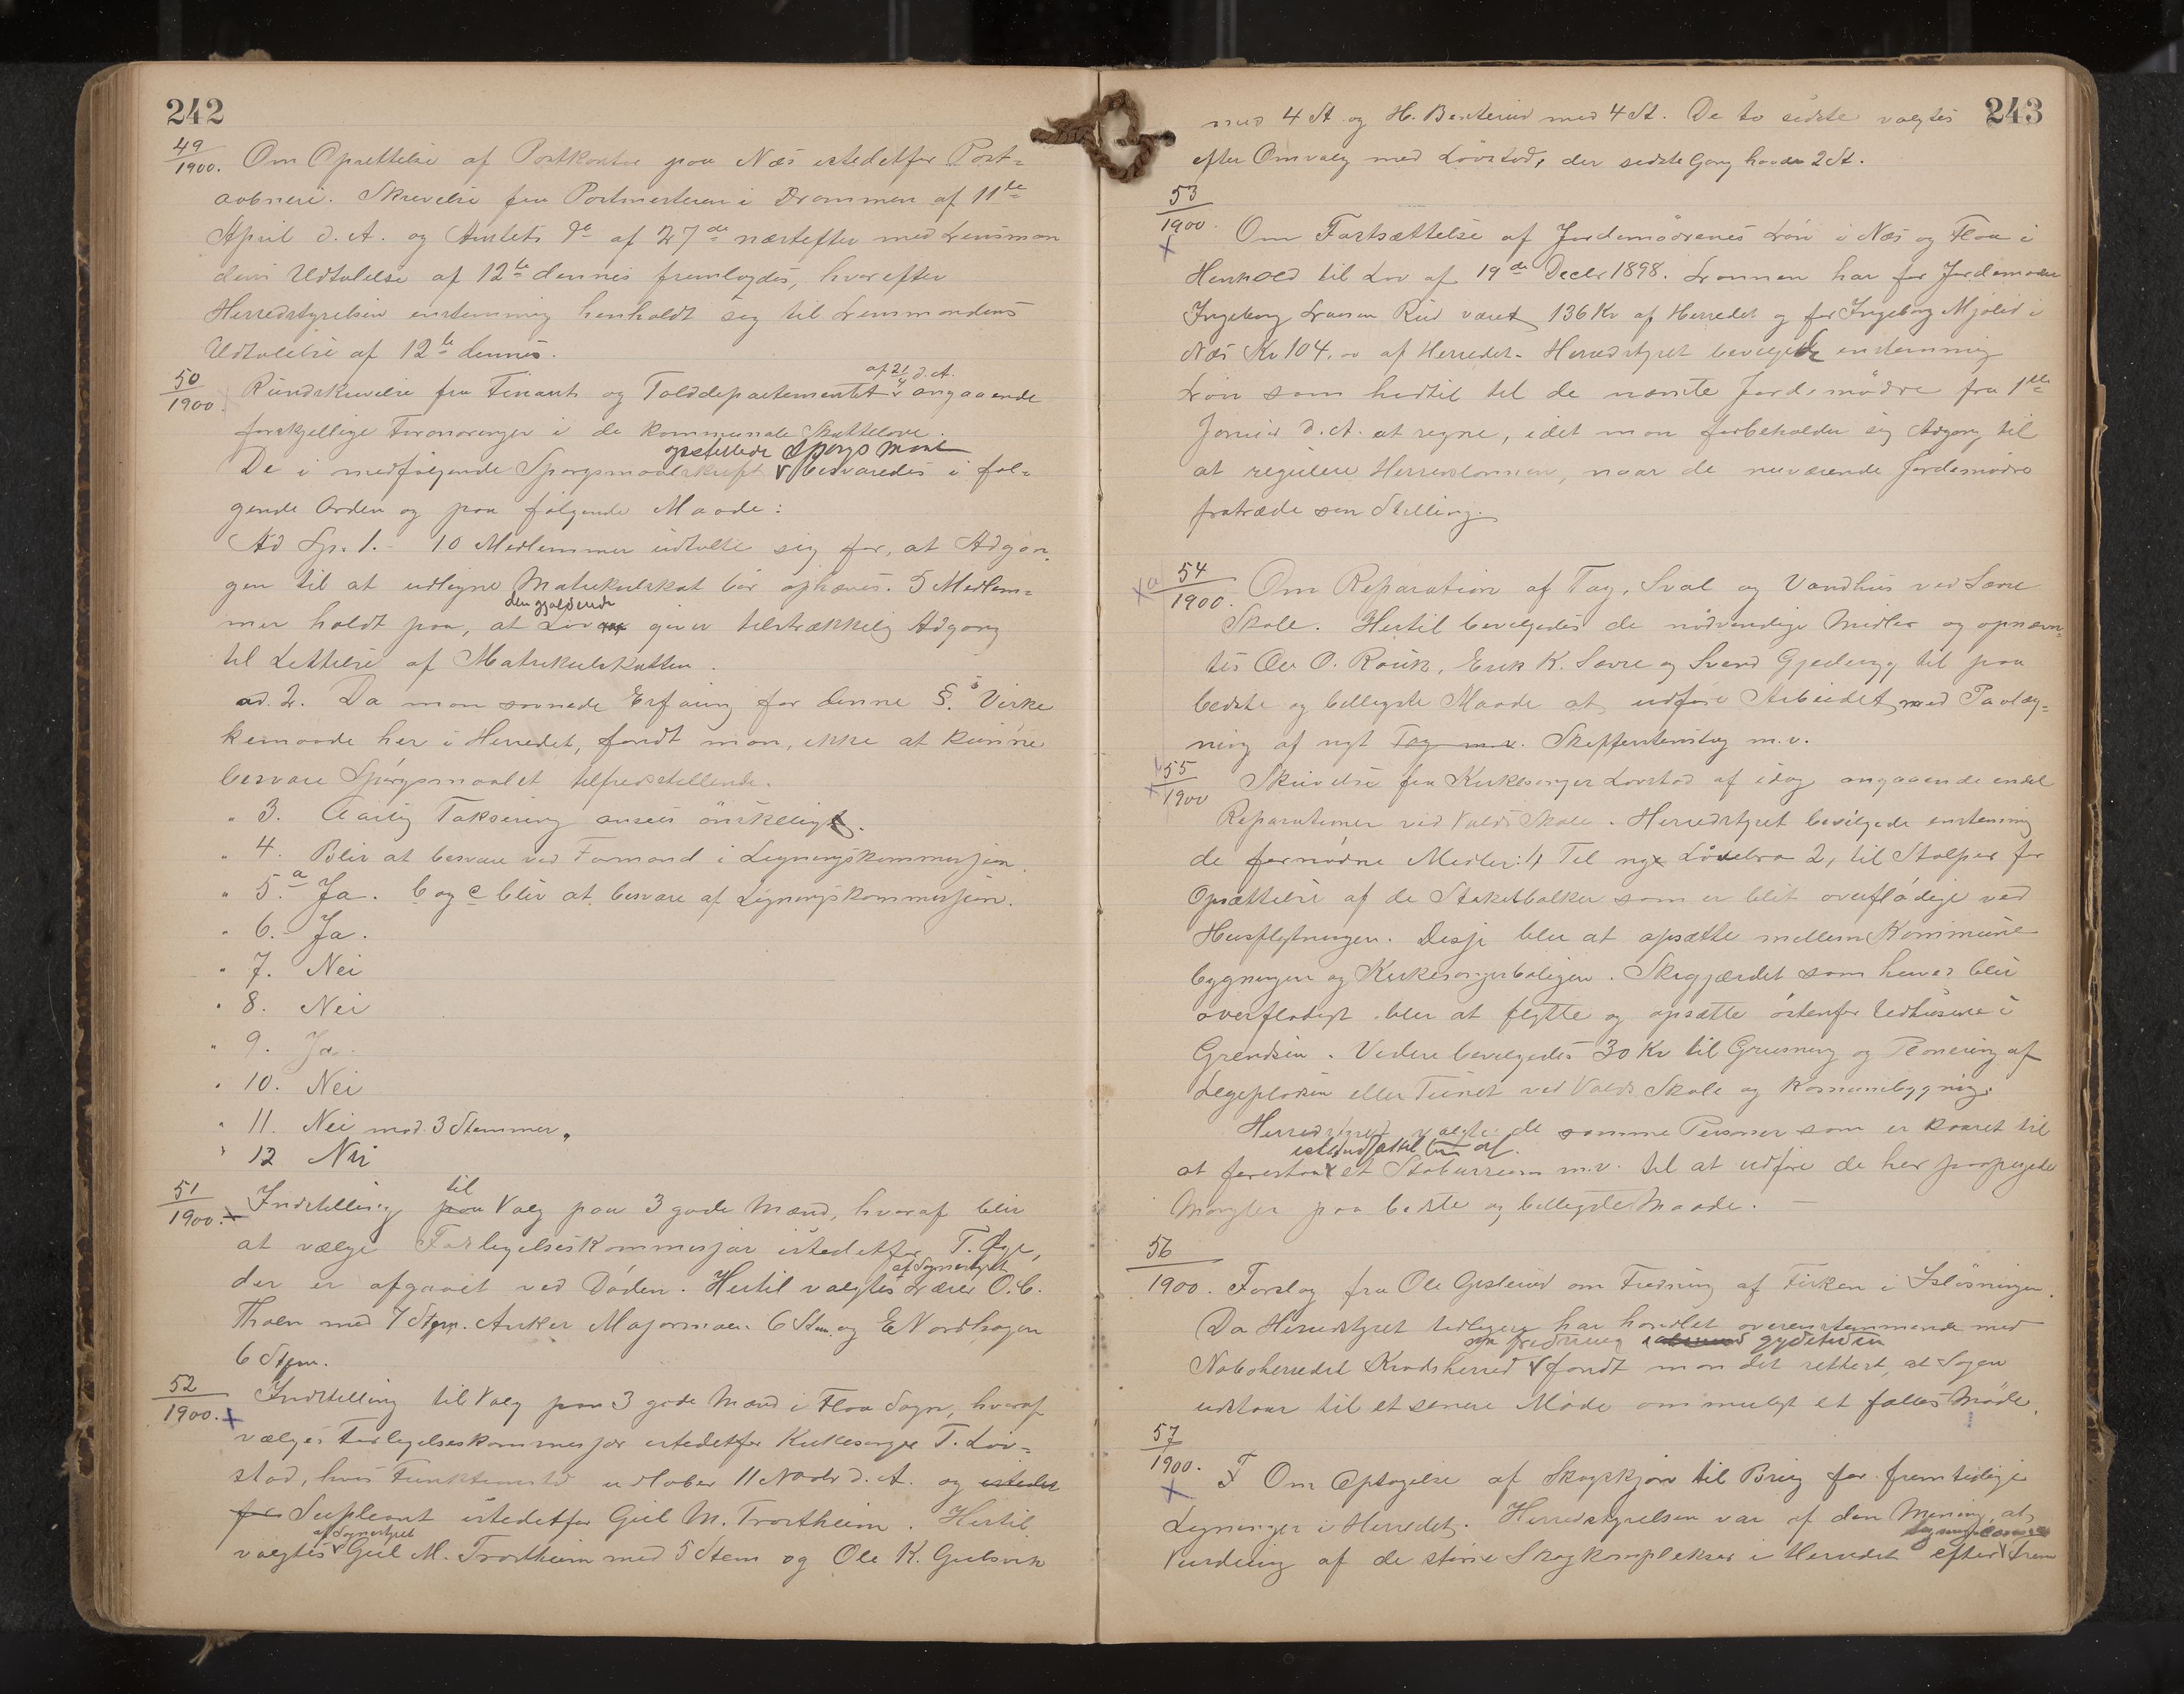 242
49/1900. Om Oprettelse af Postkontor paa Næs istedetfor Post=
aabneri. Skrivelse fra Postmesteren i Drammen af 11te
April d. A. og Amtets do af 27de næstefter med Lensman
dens Udtalelse af 12te dennes fremlagdes, hvorefter
Herredstyrelsen enstemmig henholdt sig til Lensmandens
Udtalelse af 12te dennes.
50/1900. Rundskrivelse fra Finants og Tolddepartementet af 21/4 d. A. angaaende
forskjellige Forandringer i de kommunale Skattelove.
De i medfølgende Spørgsmaalskrift opstillede Spørgsmaal besvaredes i føl=
gende Orden og paa følgende Maade:
Ad Sp. 1. 10 Medlemmer udtalte sig for, at Adgan
gen til at udligne Matrikulskat bør ophæves. 5 Medlem=
mer holdt paa, at den gjældende Lov giver tilstrækkelig Adgang
til Lettelse af Matrikulskatten.
ad. 2. Da man savnede Erfaring for denne §.s Virke
kemaade her i Herredet, fandt man, ikke at kunne
besvare Spørgsmaalet tilfredsstillende.
" 3. Aarlig Taksering ansees ønskeligt.
" 4. Blir at besvare ved Formand i Ligningskommissjon.
" 5.a Ja. b og c blir at besvare af Ligningskommissjon.
" 6. Ja.
" 7. Nei
" 8. Nei
" 9. Ja.
" 10. Nei
" 11. Nei mod 3 Stemmer.
" 12 Nei
51/1900. Indstilling paa til Valg paa 3 gode Mænd, hvoraf blir
at vælge Forligelseskommissjær istedetfor T.
der er afgaaet ved Døden. Hertil valgtes af Sognestyret Lærer O. C.
Thoen med 7 Stem. Anker Majormoen 6 Stm. og E Nordhagen
6 Stem.
52/1900. Indstilling til Valg paa 3 gode Mænd i Flaa Sogn, hvoraf
vælges Forligelseskommissjær istedetfor Kirkesanger T. Løv=
stad, hvis Funktionstid udløber 11 Novbr d. A. og istedet
for Supleant istedetfor Gul M. Trostheim. Hertil
valgtes af Sognestyret Gul M. Trostheim med 5 Stem og Ole K. Gulsvik
243
med 4 St. og H. Benterud med 4 St. De to sidste valgtes
efter Omvalg med Løvstad, der sidste Gang havde 2 St.
53/1900. Om Fortsættelse af Jordemødrenes Løn i Næs og Flaa i
Henhold til Lov af 19de Decbr 1898. Lønnen har for Jordemoder
Ingeborg Larsen Rud været 136 Kr af Herredet og for Ingeborg Mjølid i
Næs Kr 104.00 af Herredet. Herredstyret bevilgede enstemmig
Løn som hidtil til de nævnte Jordemødre fra 1ste
Januar d. A. at regne, idet man forbeholder sig Adgang til
at regulere Herredslønnen, naar de nuværende Jordemødre
fratræde sin Stilling.
54/1900. Om Reparation af Tag, Sval og Vandhus ved Sævre
Skole. Hertil bevilgedes de nødvendige Midler og opnævn=
tes Ole O. Rouk, Erik K. Sævre og Svend Gjedeng til paa
bedste og billigste Maade at udføre Arbeidet med Paalæg=
ning af nyt Tag m.v. Skiffertenstag m.v.
55/1900 Skrivelse fra Kirkesanger Lovstad af idag angaaende endel
Reparationer ved Volds Skole. Herredstyret bevilgede enstemig
de fornødne Midler: 1, Til nye Låvebro 2, til Stolper for
Opsættelse af de Staketbolker som er blit overflødige ved
Husflytningen. Disse blir at opsætte mellem Kommune
bygningen og Kirkesangerboligen. Skigjærdet som herved blir
overflødigt blir at flytte og opsætte østenfor Udhusene i
Grændsen. Videre bevilgedes 30 Kr til Grusning og Planering af
Legepladsen eller Tunet ved Volds Skole og Kommunebygning.
Herredstyret valgte de samme Personer som er kaaret til
at forestaa istandsættelsen af et Staburrum m.v. til at udføre de her paapegede
Mangler paa bedste og billigste Maade. —
56/1900. Forslag fra Ole Gislerud om Fredning af Fisken i Isløsningen.
Da Herredstyret tidligere har handlet overenstemmende med
Naboherredet Krødsherred om fredning i gydetiden fandt man det rettest, at Sagen
udstaar til et senere Møde om muligt et fælles Møde.
57/1900. Om Optagelse af Skogskjøn til Brug for fremtidige
Ligninger i Herredet. Herredstyrelsen var af den Mening, at
Vurdering af de større Skogkomplekser i Herredet efter frem